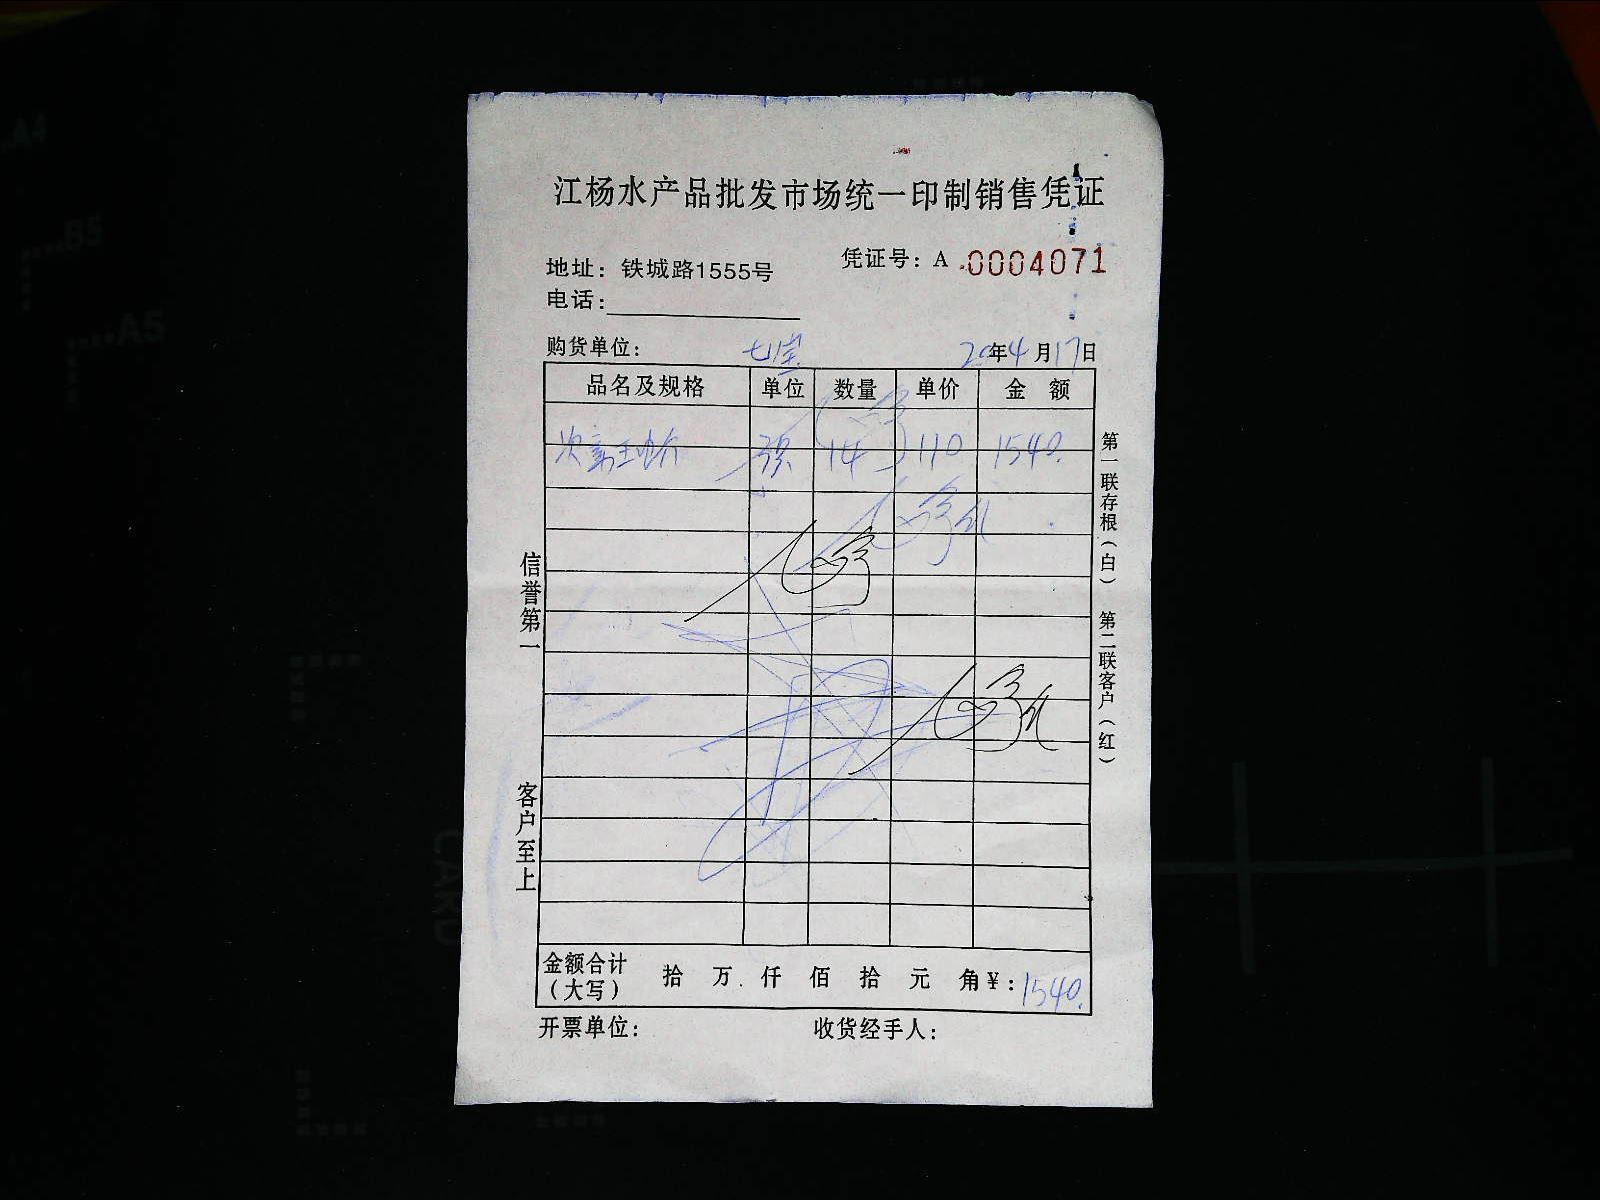 江杨水产品批发市场统一印制销售凭证
凭证号：A 0004071
地址：铁城路1555号
电话：
购货单位： 七宝 20年4月17日
品名及规格 单位 数量 单价 金 额
14 110 1540.
第一联存根（白） 第二联客户（红）
信誉第一
客户至上
金额合计（大写） 拾 万 仟 佰 拾 元 角￥：1540.
开票单位： 收货经手人：
A4
B5
A5
CARD